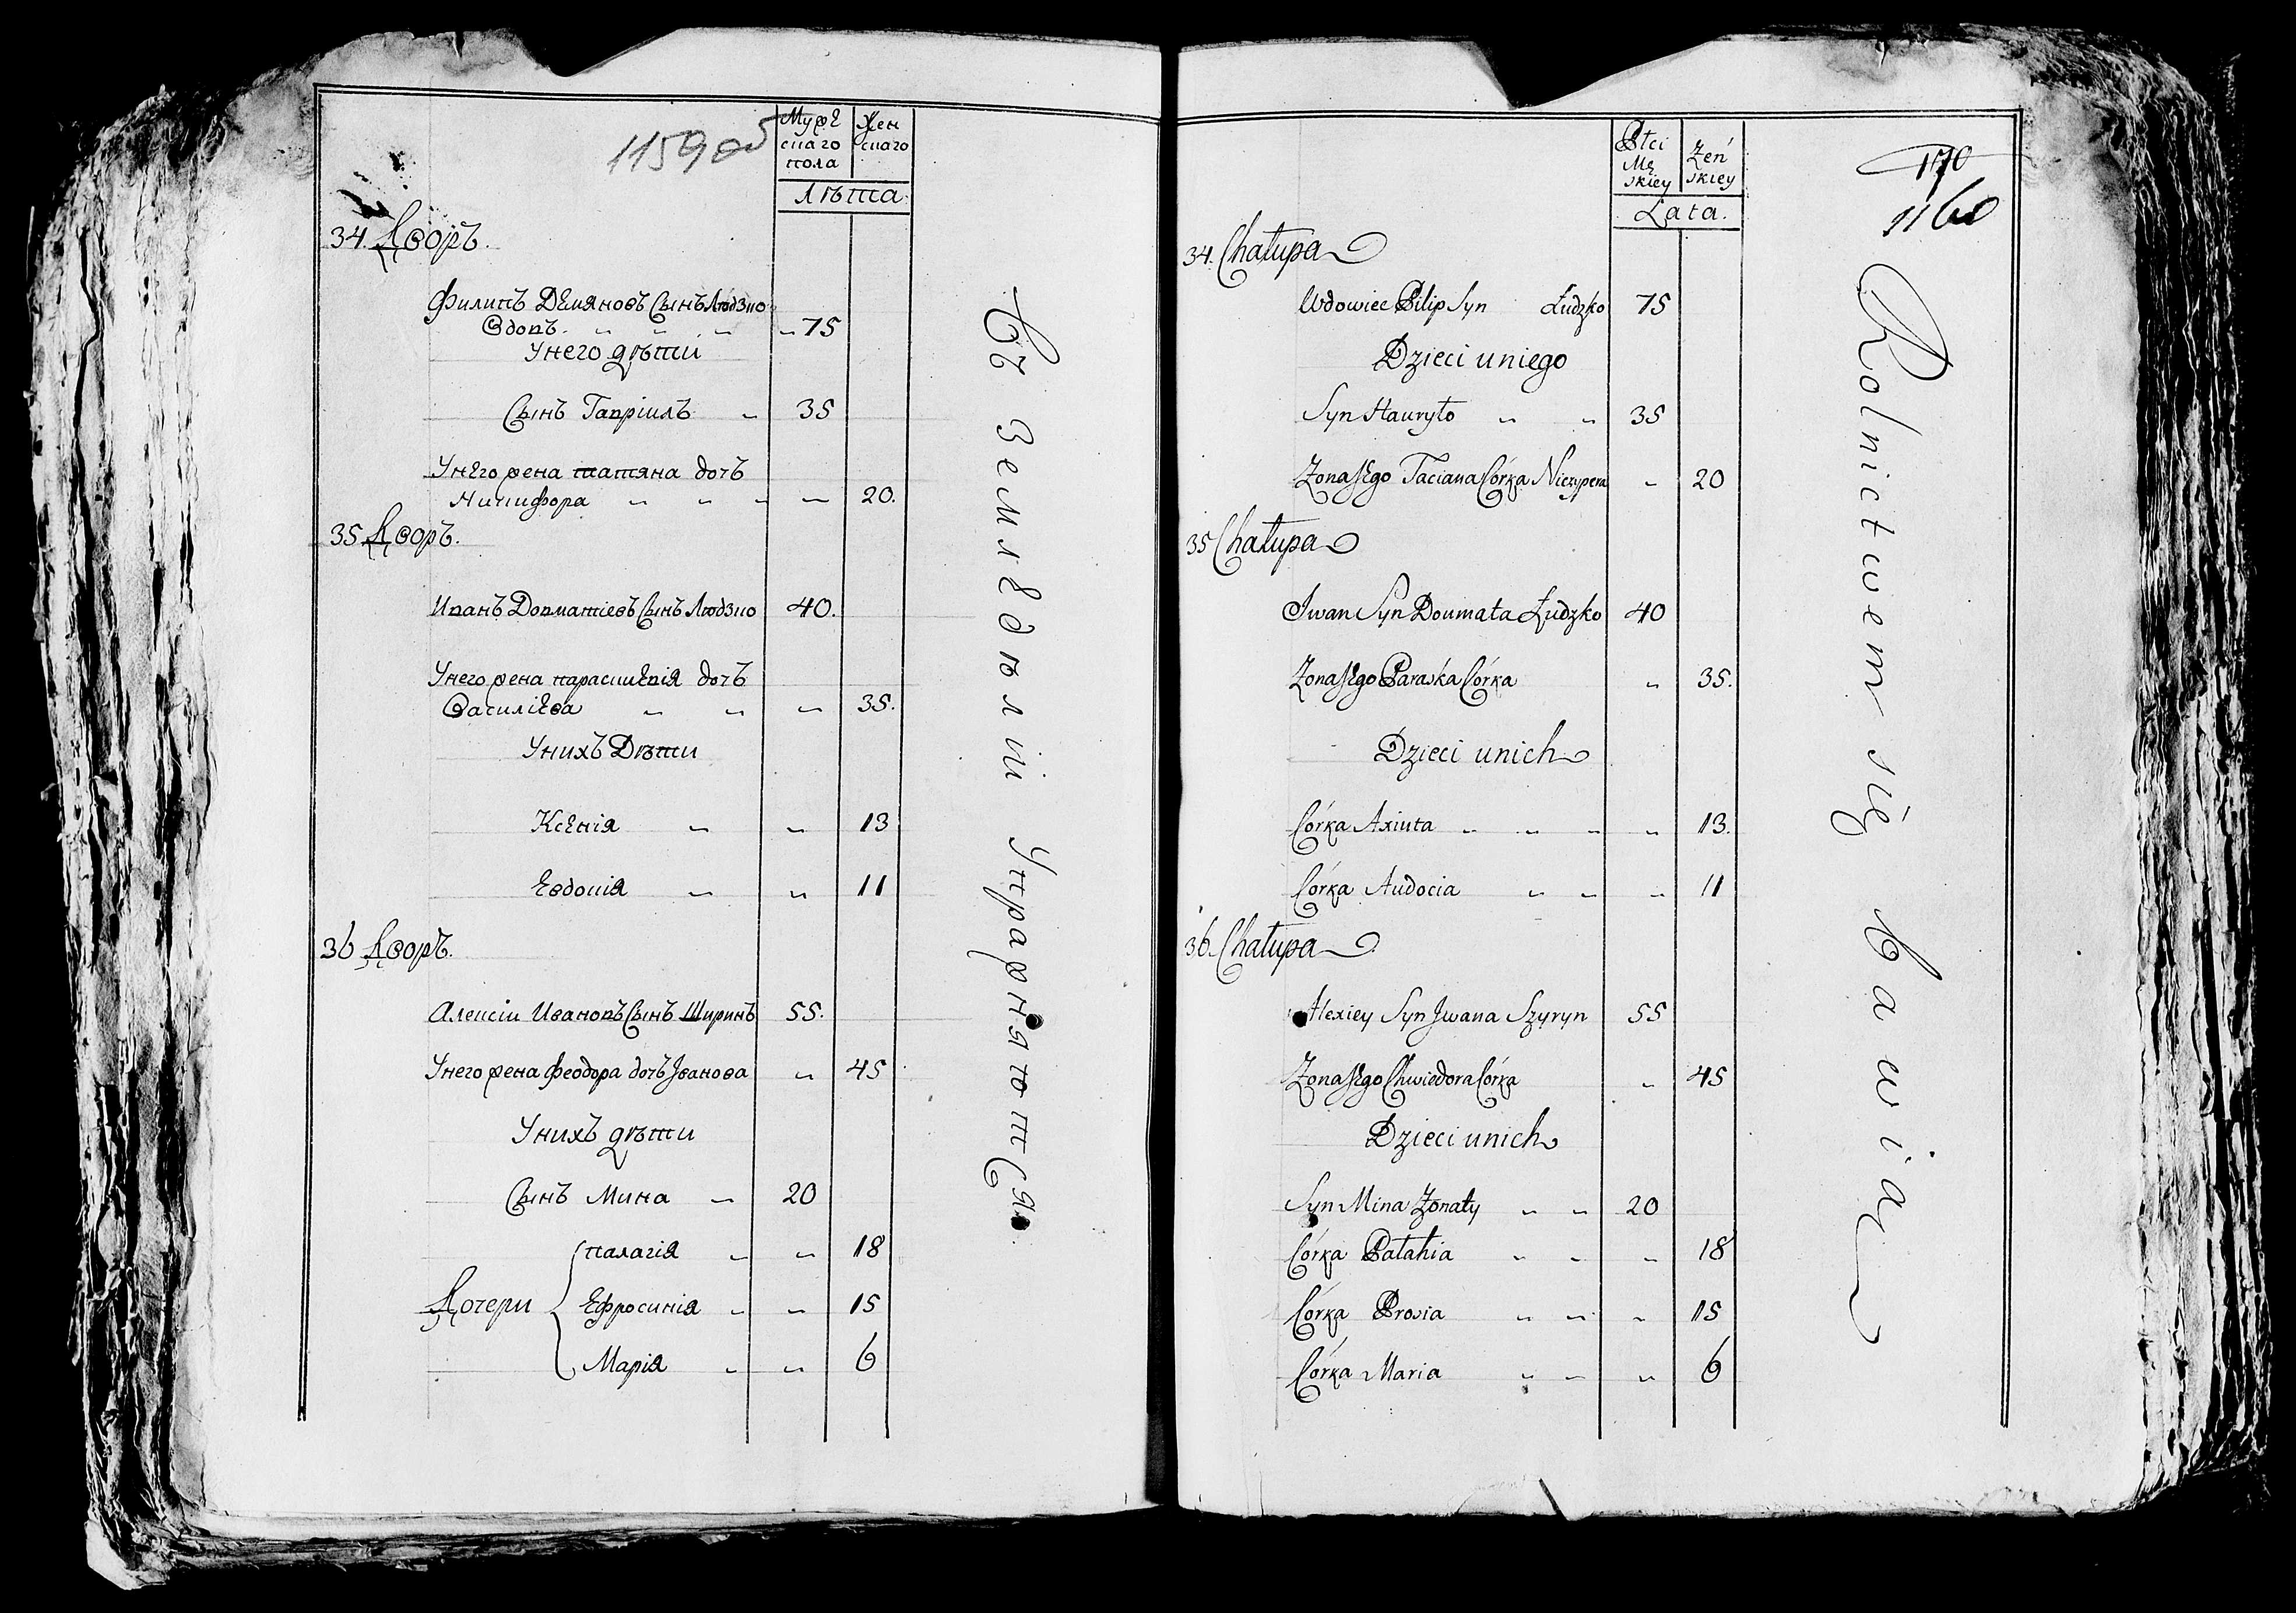 1159 об
Мужескаго пола
Женскаго
Лѣта.
34. Дворъ.
Филипъ Демяновъ Сынъ Людзко
Вдовъ. 75
У него дѣти
Сынъ Гавріилъ 35
У него жена татяна дочъ
Ничифора 20.
35 Дворъ.
Иванъ Довматіевъ Сынъ Людзко 40.
У него жена параскевія дочъ
Василіева 35.
У нихъ Дѣти
Ксенія 13
Евдокія 11
36 Дворъ.
Алексіи Ивановъ Сынъ Ширинъ 55.
У него жена Феодора дочъ Іванова 45
У нихъ дѣти
Сынъ Мина 20
Дочери
палагія 18
Ефросинія 15
Марія 6
Въ Земледѣліи УпражняютСя.
1170
1160
Płci Męskiey
Żeńskiey
Lata.
34. Chałupa
Wdowiec Pilip Syn Łudzko 75
Dzieci u niego
Syn Hauryło 35
Żona Jego Taciana Córka Niczypera 20
35 Chałupa
Iwan Syn Doumata Łudzko 40
Żona Jego Paraska Córka 35.
Dzieci u nich
Córka Axiuta 13.
Córka Audocia 11
36. Chałupa
Alexiey Syn Jwana Szyryn 55
Żona Jego Chwiedora Córka 45
Dzieci u nich
Syn Mina Żonaty 20
Córka Pałahia 18
Córka Prosia 15
Córka Maria 6
Rolnictwem się bawią